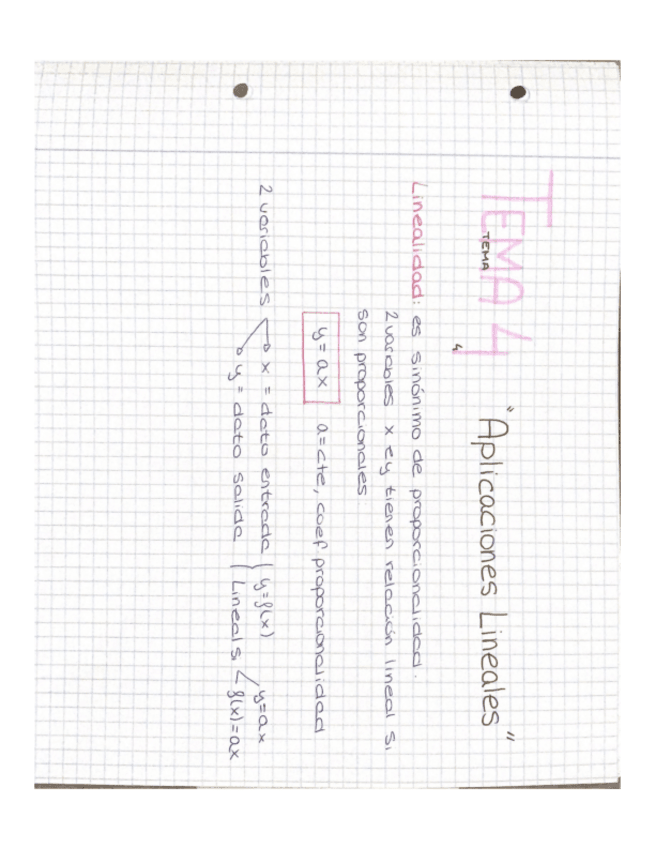 TEMA 4 "Aplicaciones Lineales"
TEMA 4
Linealidad: es sinónimo de proporcionalidad.
2 variables x e y tienen relación lineal si
son proporcionales
y = ax a = cte, coef proporcionalidad
2 variables x = dato entrada y = f(x) y = ax
y = dato salida Lineal si f(x) = ax